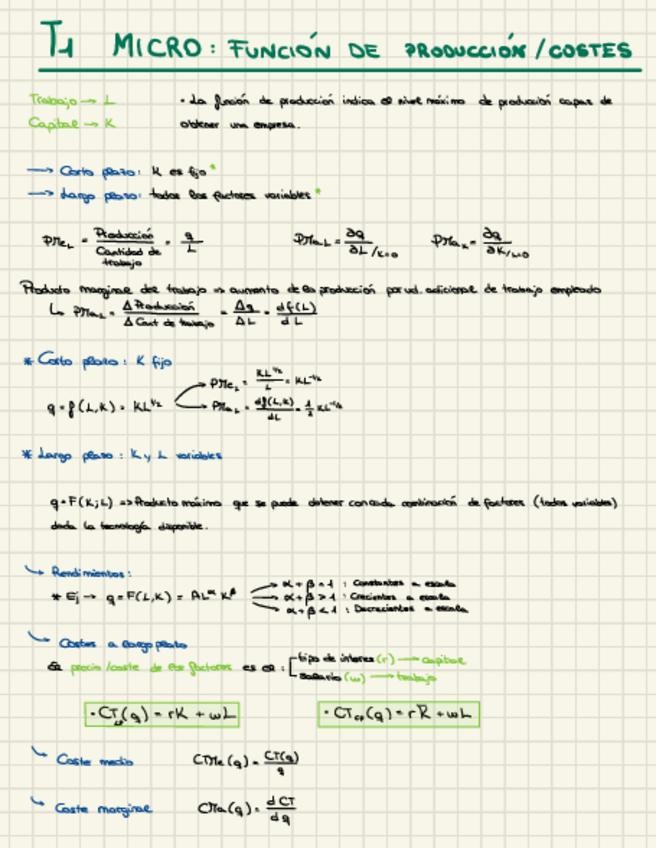 T1 MICRO: FUNCIÓN DE PRODUCCIÓN/COSTES
Trabajo → L
Capital → K
• La función de producción indica el nivel máximo de producción capaz de
obtener una empresa.
→ Corto plazo: K es fijo*
→ Largo plazo: todos los factores variables*
PMe_L = Producción / Cantidad de trabajo = q / L
PMa_L = ∂q / ∂L /K=0
PMa_K = ∂q / ∂K /L=0
Producto marginal del trabajo => aumento de la producción por ud. adicional de trabajo empleado
↳ PMa_L = Δ Producción / Δ Cant de trabajo = Δq / ΔL = df(L) / dL
* Corto plazo: K fijo
q = f(L,K) = KL^1/2
PMe_L = KL^1/2 / L = KL^-1/2
PMa_L = df(L,K) / dL = 1/2 KL^-1/2
* Largo plazo: K y L variables
q = F(K;L) => Producto máximo que se puede obtener con cada combinación de factores (todos variables)
dada la tecnología disponible.
↳ Rendimientos:
* Ej → q = F(L,K) = AL^α K^β
α + β = 1 : Constantes a escala
α + β > 1 : Crecientes a escala
α + β < 1 : Decrecientes a escala
↳ Costes a largo plazo
El precio/coste de los factores es el:
tipo de interes (r) → capital
salario (w) → trabajo
• CT_LP(q) = rK + wL
• CT_CP(q) = rK̄ + wL
↳ Coste medio
CTMe(q) = CT(q) / q
↳ Coste marginal
CMa(q) = dCT / dq